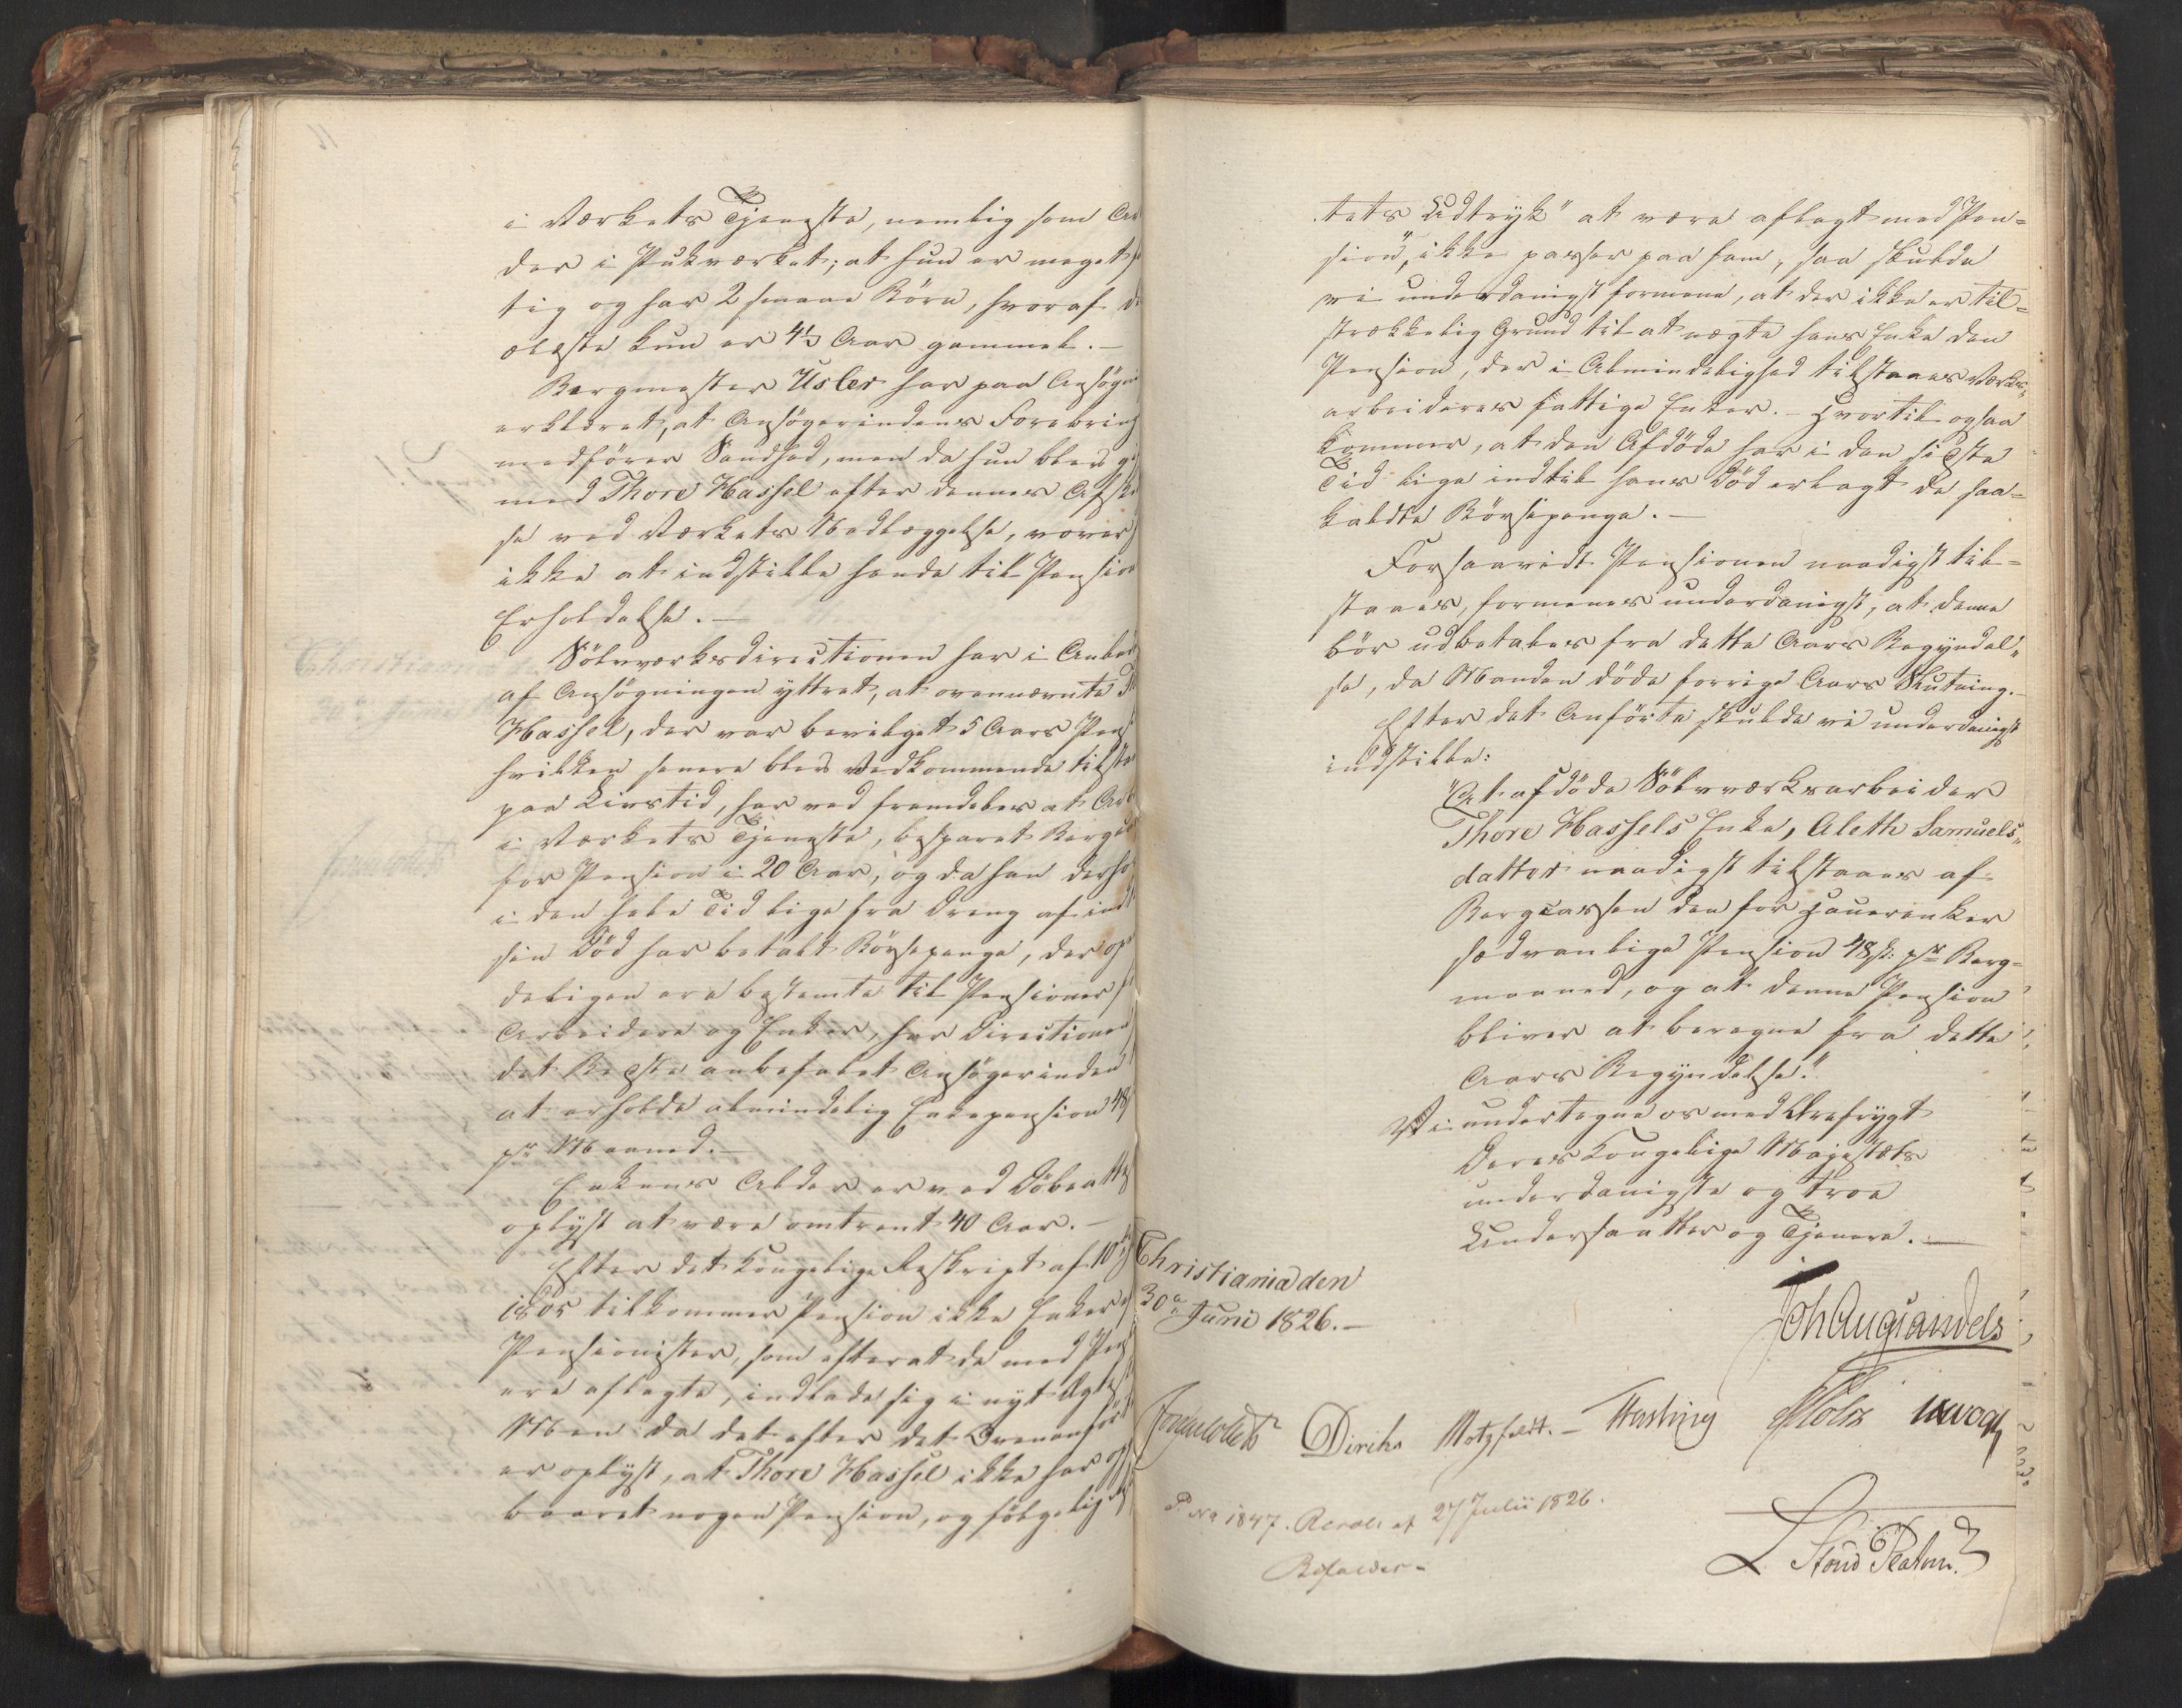 i Værkets Tjeneste, nemlig som Ar
der i Pukværket; at hun er meget
tig og har 2 smaae Börn, hvoraf
ældste kun er 4½ Aar gammel. —
Bergmester Usler har paa Ansögni
erklæret, at Ansögerindens Forebring
medförer Sandhed, men da hun blev gi
med Thore Hassel efter dennes Afske
se ved Værkets Nedlæggelse, vover
ikke at indstille hende til Pension
Erholdelse. —
Sölvværksdirectionen har i Anled
af Ansögningen yttret, at ovennævnte Th
Hassel, der var bevilget 5 Aars Pens
hvilken senere blev Vedkommende tilsta
paa Livstid, har ved fremdeles at Arb
i Værkets Tjeneste, besparet Bergca
for Pension i 20 Aar, og da han derho
i den hele Tid lige fra Dreng af indt
sin Död har betalt Bössepenge, der op
deligen ere bestemte til Pensioner f
Arbeidere og Enker, har Directionen
det Bedste anbefalet Ansögerinden
at erholde almindelig Enkepension 48
pr Maaned. —
Enkens Alder er ved Döbeattes
oplyst at være omtrent 40 Aar. —
Efter det Kongelige Reskript af 10
1805 tilkommer Pension ikke Enker
Pensionister, som efterat de med Pens
ere aflagte, indlade sig i nyt Ægtesk
Men da det efter det Ovenanfört
er oplyst, at Thore Hassel ikke har op
baaret nogen Pension, og fölgelig
tets Udtryk "at være aflagt med Pen=
sion", ikke passer paa ham, saa skulde
vi underdanigst formene, at der ikke er til=
strækkelig Grund til at nægte hans Enke den
Pension, der i Almindelighed tilstaaes Værks„
arbeideres fattige Enker. — Hvortil ogsaa
kommer, at den Afdöde har i den sidste
Tid lige indtil hans Död erlagt de saa=
kaldte Bössepenge. —
Forsaavidt Pensionen naadigst til=
staaes, formenes underdanigst, at denne
bör udbetales fra dette Aars Begyndel„
se, da Manden döde forrige Aars Slutning. —
Efter det Anförte skulde vi underdanigst
indstille:
"At afdöde Sölvværksarbeider
Thore Hassels Enke, Aleth Samuels„
datter naadigst tilstaaes af
Bergcassen den for Hauerenker
sædvanlige Pension 48 s: pr Berg=
maaned, og at denne Pension
bliver at beregne fra dette
Aars Begyndelse."
Vi undertegne os med Ærefrygt
Deres Kongelige Majestæts
underdanigste og troe
Undersaatter og Tjenere. —
Christiania den
30te Juni 1826. —
Joh Aug Sandels
Diriks Motzfeldt. — Fasting Holst
P. No 1847. Resol. af 27 Julii 1826.
Bifaldes —
L. Stoud Platou